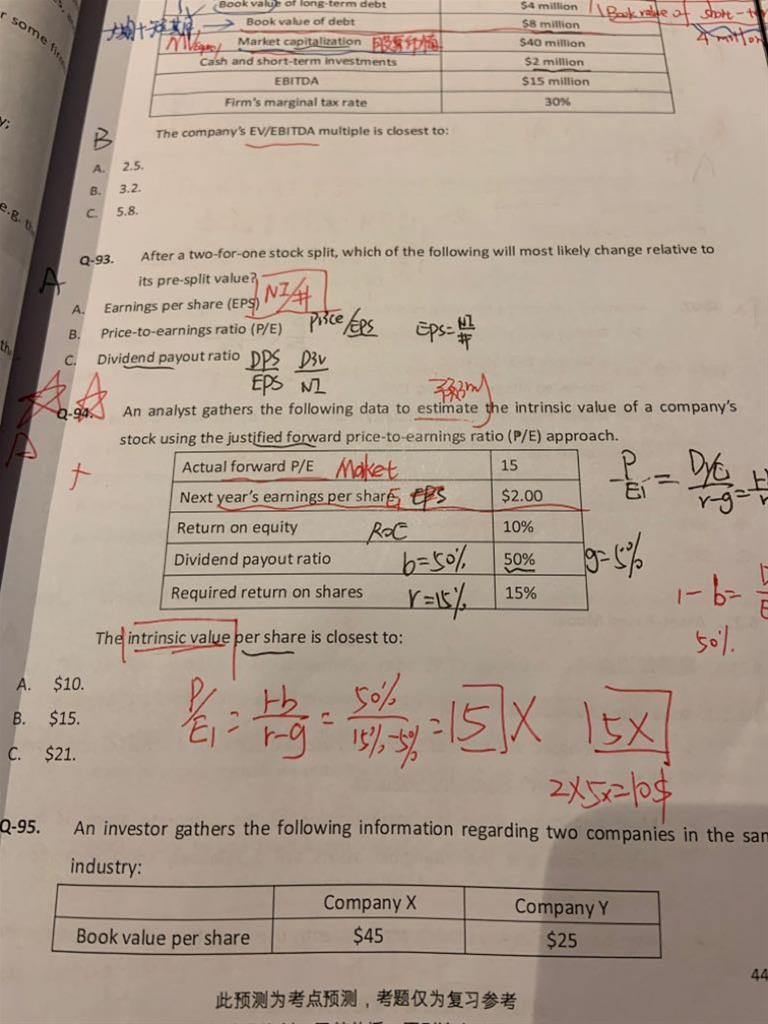 r some fir
Book value of long-term debt $4 million Book value of short-t
Book value of debt $8 million 4 million
Market capitalization $40 million
Cash and short-term investments $2 million
EBITDA $15 million
Firm's marginal tax rate 30%
y;
B The company's EV/EBITDA multiple is closest to:
A. 2.5.
B. 3.2.
C. 5.8.
e.g. th
Q-93. After a two-for-one stock split, which of the following will most likely change relative to
A its pre-split value?
A. Earnings per share (EPS) NI/#
B. Price-to-earnings ratio (P/E) Price/EPS EPS=NI/#
C. Dividend payout ratio DPS/EPS Div/NI
th
A Q-94. An analyst gathers the following data to estimate the intrinsic value of a company's
stock using the justified forward price-to-earnings ratio (P/E) approach.
Actual forward P/E Maket 15
Next year's earnings per share EPS $2.00
Return on equity ROE 10%
Dividend payout ratio b=50% 50% g=5%
Required return on shares r=15% 15%
50%.
The intrinsic value per share is closest to:
A. $10.
B. $15.
C. $21.
P/E1 = 1-b/r-g = 50%/15%-5% = 5X 5X
2X5x=10$
Q-95. An investor gathers the following information regarding two companies in the sam
industry:
Company X Company Y
Book value per share $45 $25
44
此预测为考点预测，考题仅为复习参考